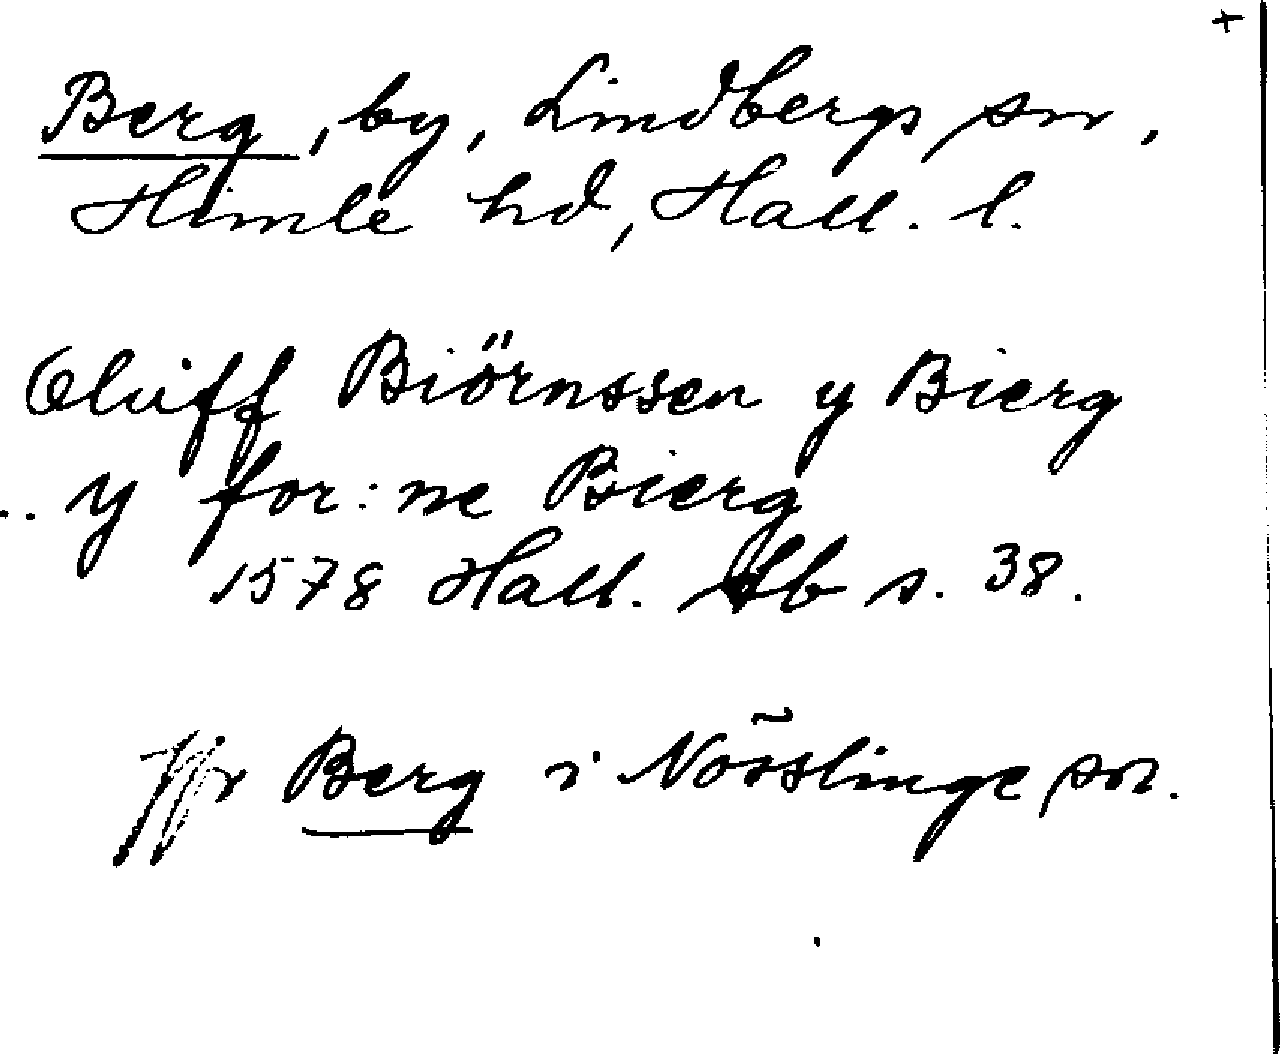 +
Berg, by, Lindbergs sn,
Himle hd, Hall. l.
Oluff Biörnssen y Bierg
.. y for:ne Bierg
1578 Hall. Lb s. 38.
Jfr Berg i Nösslinge sn.